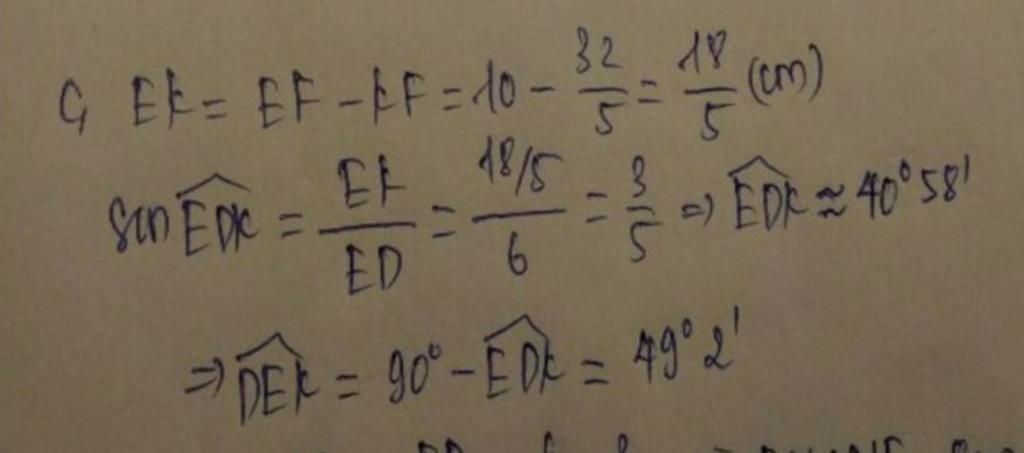 c, EK = EF - KF = 10 - 32/5 = 18/5 (cm)
sin EDK = EK/ED = (18/5)/6 = 3/5 => EDK ≈ 40°58'
=> DEK = 90° - EDK = 49°2'